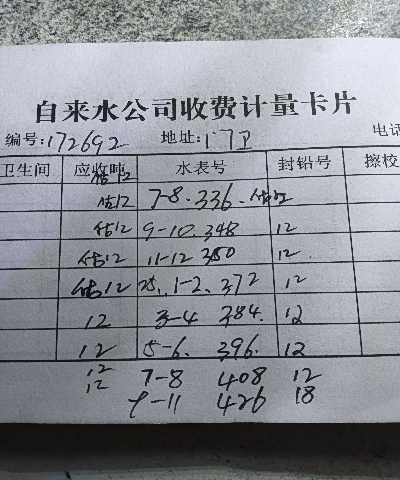 自来水公司收费计量卡片
编号:172692 地址:门卫 电话
卫生间 应收吨 水表号 封铅号 擦校
估12
估12 7-8. 336. 估12
估12 9-10. 348 12
估12 11-12 360 12.
估12 25. 1-2. 372 12
12 3-4 384. 12
12 5-6. 396. 12
12
12 7-8 408 12
9-11 426 18